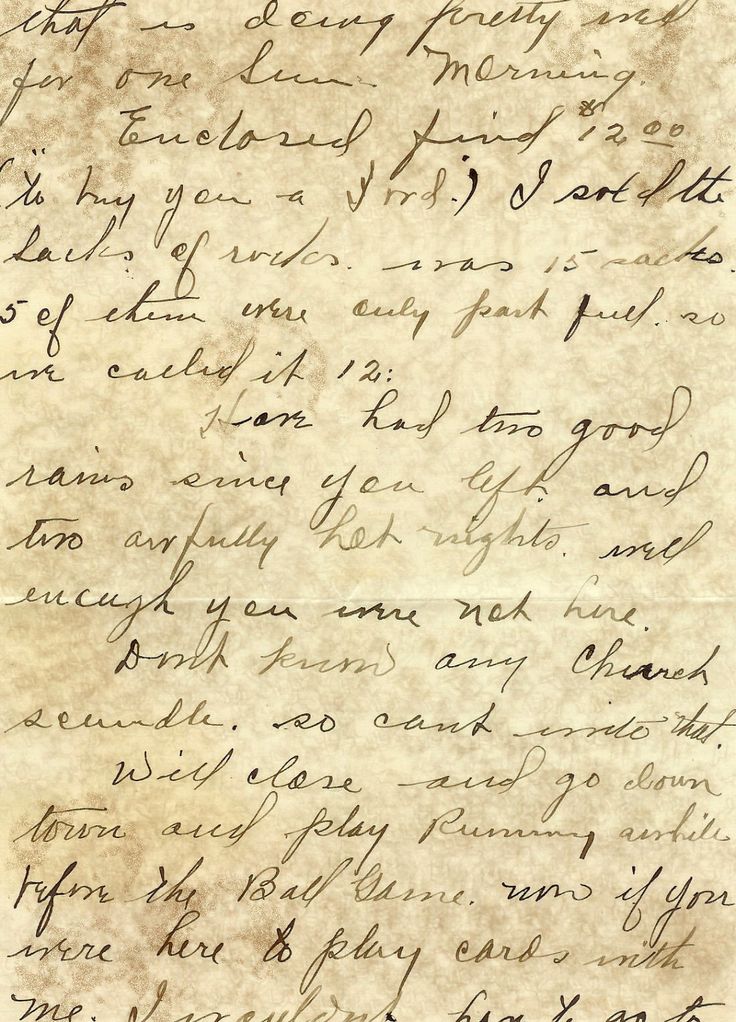 that is doing pretty well
for one Sun. Morning.
Enclosed find $12.00
(to buy you a Ford.) I sold the
sacks of rocks. was 15 sacks.
5 of them were only part full. so
we called it 12:
Have had two good
rains since you left. and
two awfully hot nights. well
enough you were not here.
Dont know any Church
scandle. so cant write that.
Will close and go down
town and play Rummy awhile
before the Ball Game. now if you
were here to play cards with
me. I wouldn't have to go to